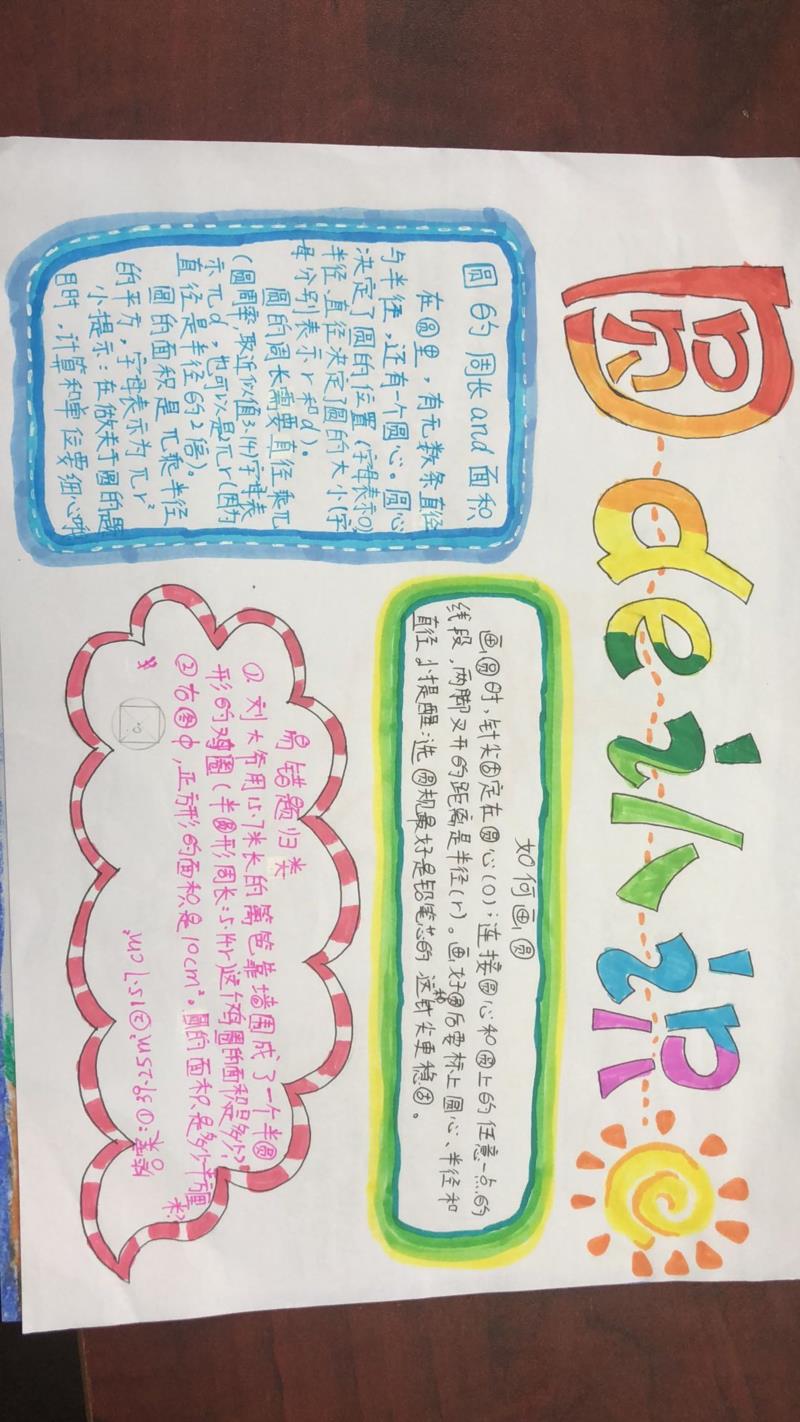 圆de认识
圆的周长and面积
在圆里，有无数条直径
与半径，还有一个圆心。圆心
决定了圆的位置(字母表示O)
半径、直径决定了圆的大小(字
母分别表示r和d)。
圆的周长需要直径乘π
(圆周率,取近似值3.14)字母表
示πd，也可以是2πr(因为
直径是半径的2倍)。
圆的面积是π乘半径
的平方，字母表示为πr²
小提示：在做关于圆的题
目时，计算和单位要细心哦
如何画圆
画圆时，针尖固定在圆心(O)；连接圆心和圆上的任意一点的
线段，两脚叉开的距离是半径(r)。画好圆后要标上圆心、半径和
直径 小提醒：选圆规最好是铅笔芯的 这和针尖更稳固。
易错题归类
①刘大爷用15.7米长的篱笆靠墙围成了一个半圆
形的鸡圈(半圆形周长:5.14r这个鸡圈的面积是多少?
②右图中，正方形的面积是10cm²。圆的面积是多少平方厘
米?
答案:①39.25m²②15.7cm²